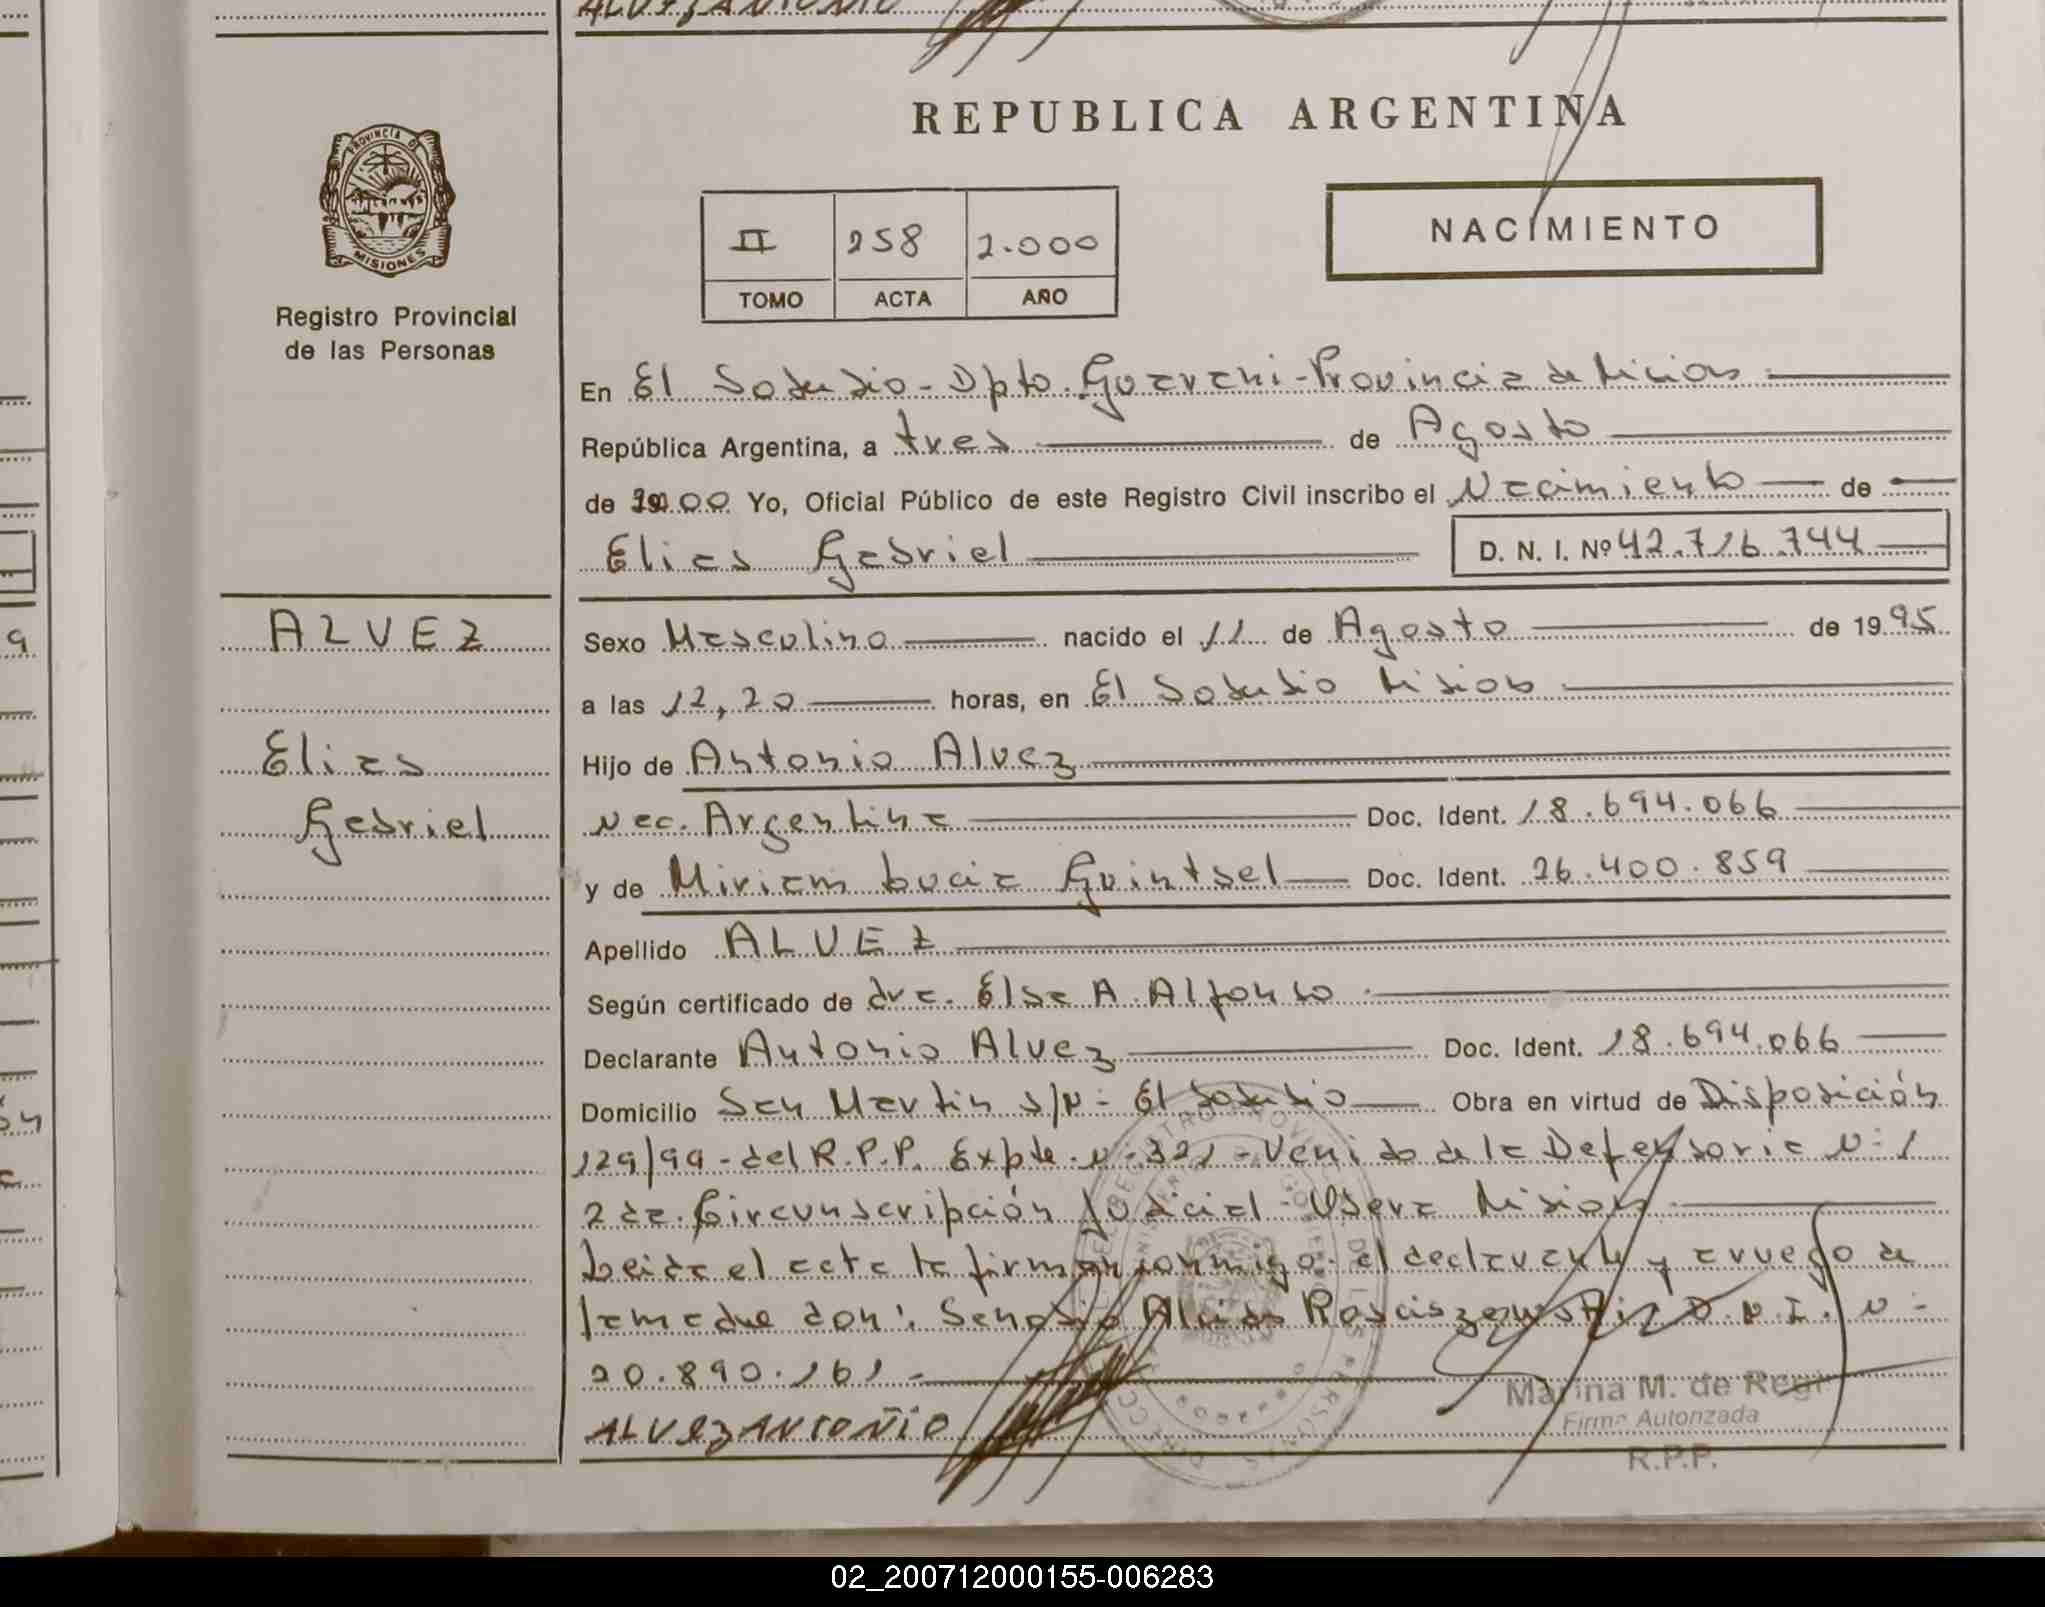 REPUBLICA ARGENTINA
PROVINCIA DE
MISIONES
Registro Provincial
de las Personas
II 258 2.000
TOMO ACTA AÑO
NACIMIENTO
En El Soberbio - Dpto. Guarani - Provincia de Misiones
República Argentina, a tres de Agosto
de 2000 Yo, Oficial Público de este Registro Civil inscribo el Nacimiento de
Elias Gabriel D. N. I. Nº 42.716.744
ALVEZ
Elias
Gabriel
Sexo Masculino nacido el 11 de Agosto de 1995
a las 12,20 horas, en El Soberbio Misiones
Hijo de Antonio Alvez
Nac. Argentina Doc. Ident. 18.694.066
y de Miriam Lucia Guintsel Doc. Ident. 26.400.859
Apellido ALVEZ
Según certificado de dra. Elsa A. Alfonso
Declarante Antonio Alvez Doc. Ident. 18.694.066
Domicilio San Martin s/n - El Soberbio Obra en virtud de Disposición
129/99 - del R.P.P. Expte. Nº 321 - Venido de la Defensoria Nº 1
2da. Circunscripción Judicial - Obera Misiones
Leida el acta la firman conmigo el declarante y a ruego de
la madre don: Alcides D.N.I. Nº
20.890.161
ALVEZ ANTOÑIO
Marina M. de Regi
Firma Autorizada
R.P.P.
02_200712000155-006283